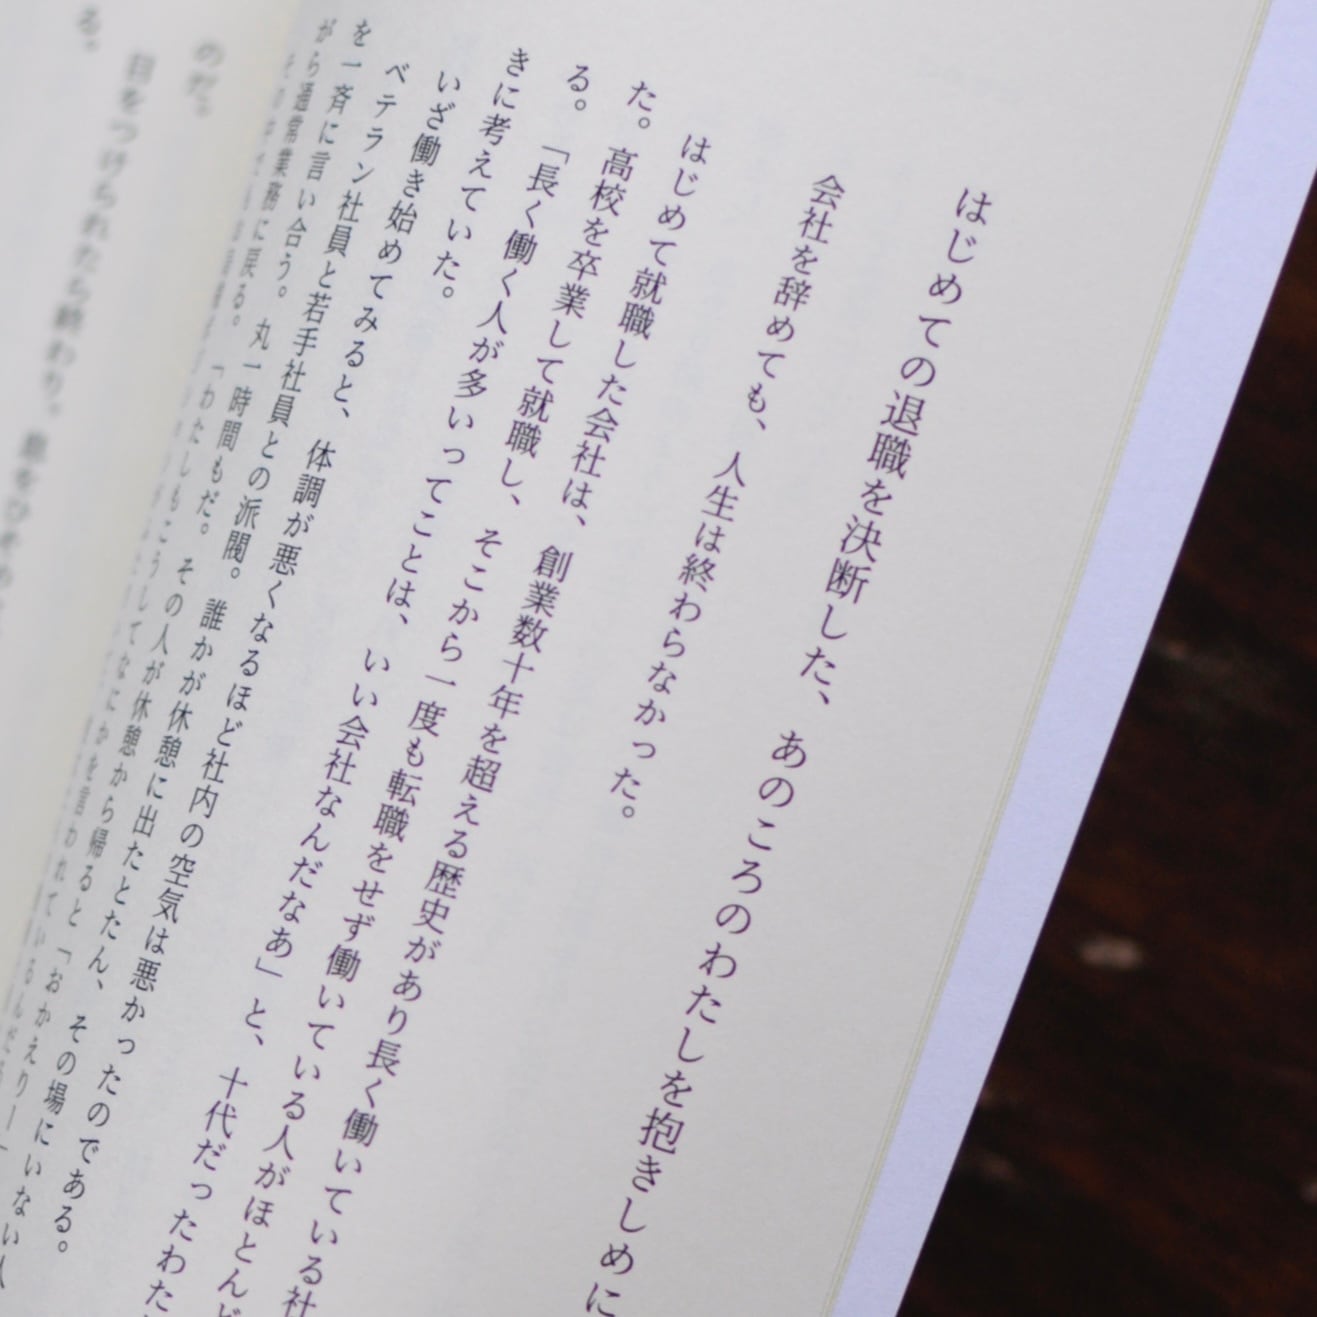 はじめての退職を決断した、あのころのわたしを抱きしめに
会社を辞めても、人生は終わらなかった。
はじめて就職した会社は、創業数十年を超える歴史があり長く働いている社
た。高校を卒業して就職し、そこから一度も転職をせず働いている人がほとんど
る。「長く働く人が多いってことは、いい会社なんだなあ」と、十代だったわた
きに考えていた。
いざ働き始めてみると、体調が悪くなるほど社内の空気は悪かったのである。
ベテラン社員と若手社員との派閥。誰かが休憩に出たとたん、その場にいない人
を一斉に言い合う。丸一時間もだ。その人が休憩から帰ると「おかえりー」
がら通常業務に戻る。「わたしもこうしてなにかを言われているんだ
のだ。
目をつけられたら終わり。息をひそめ
る。